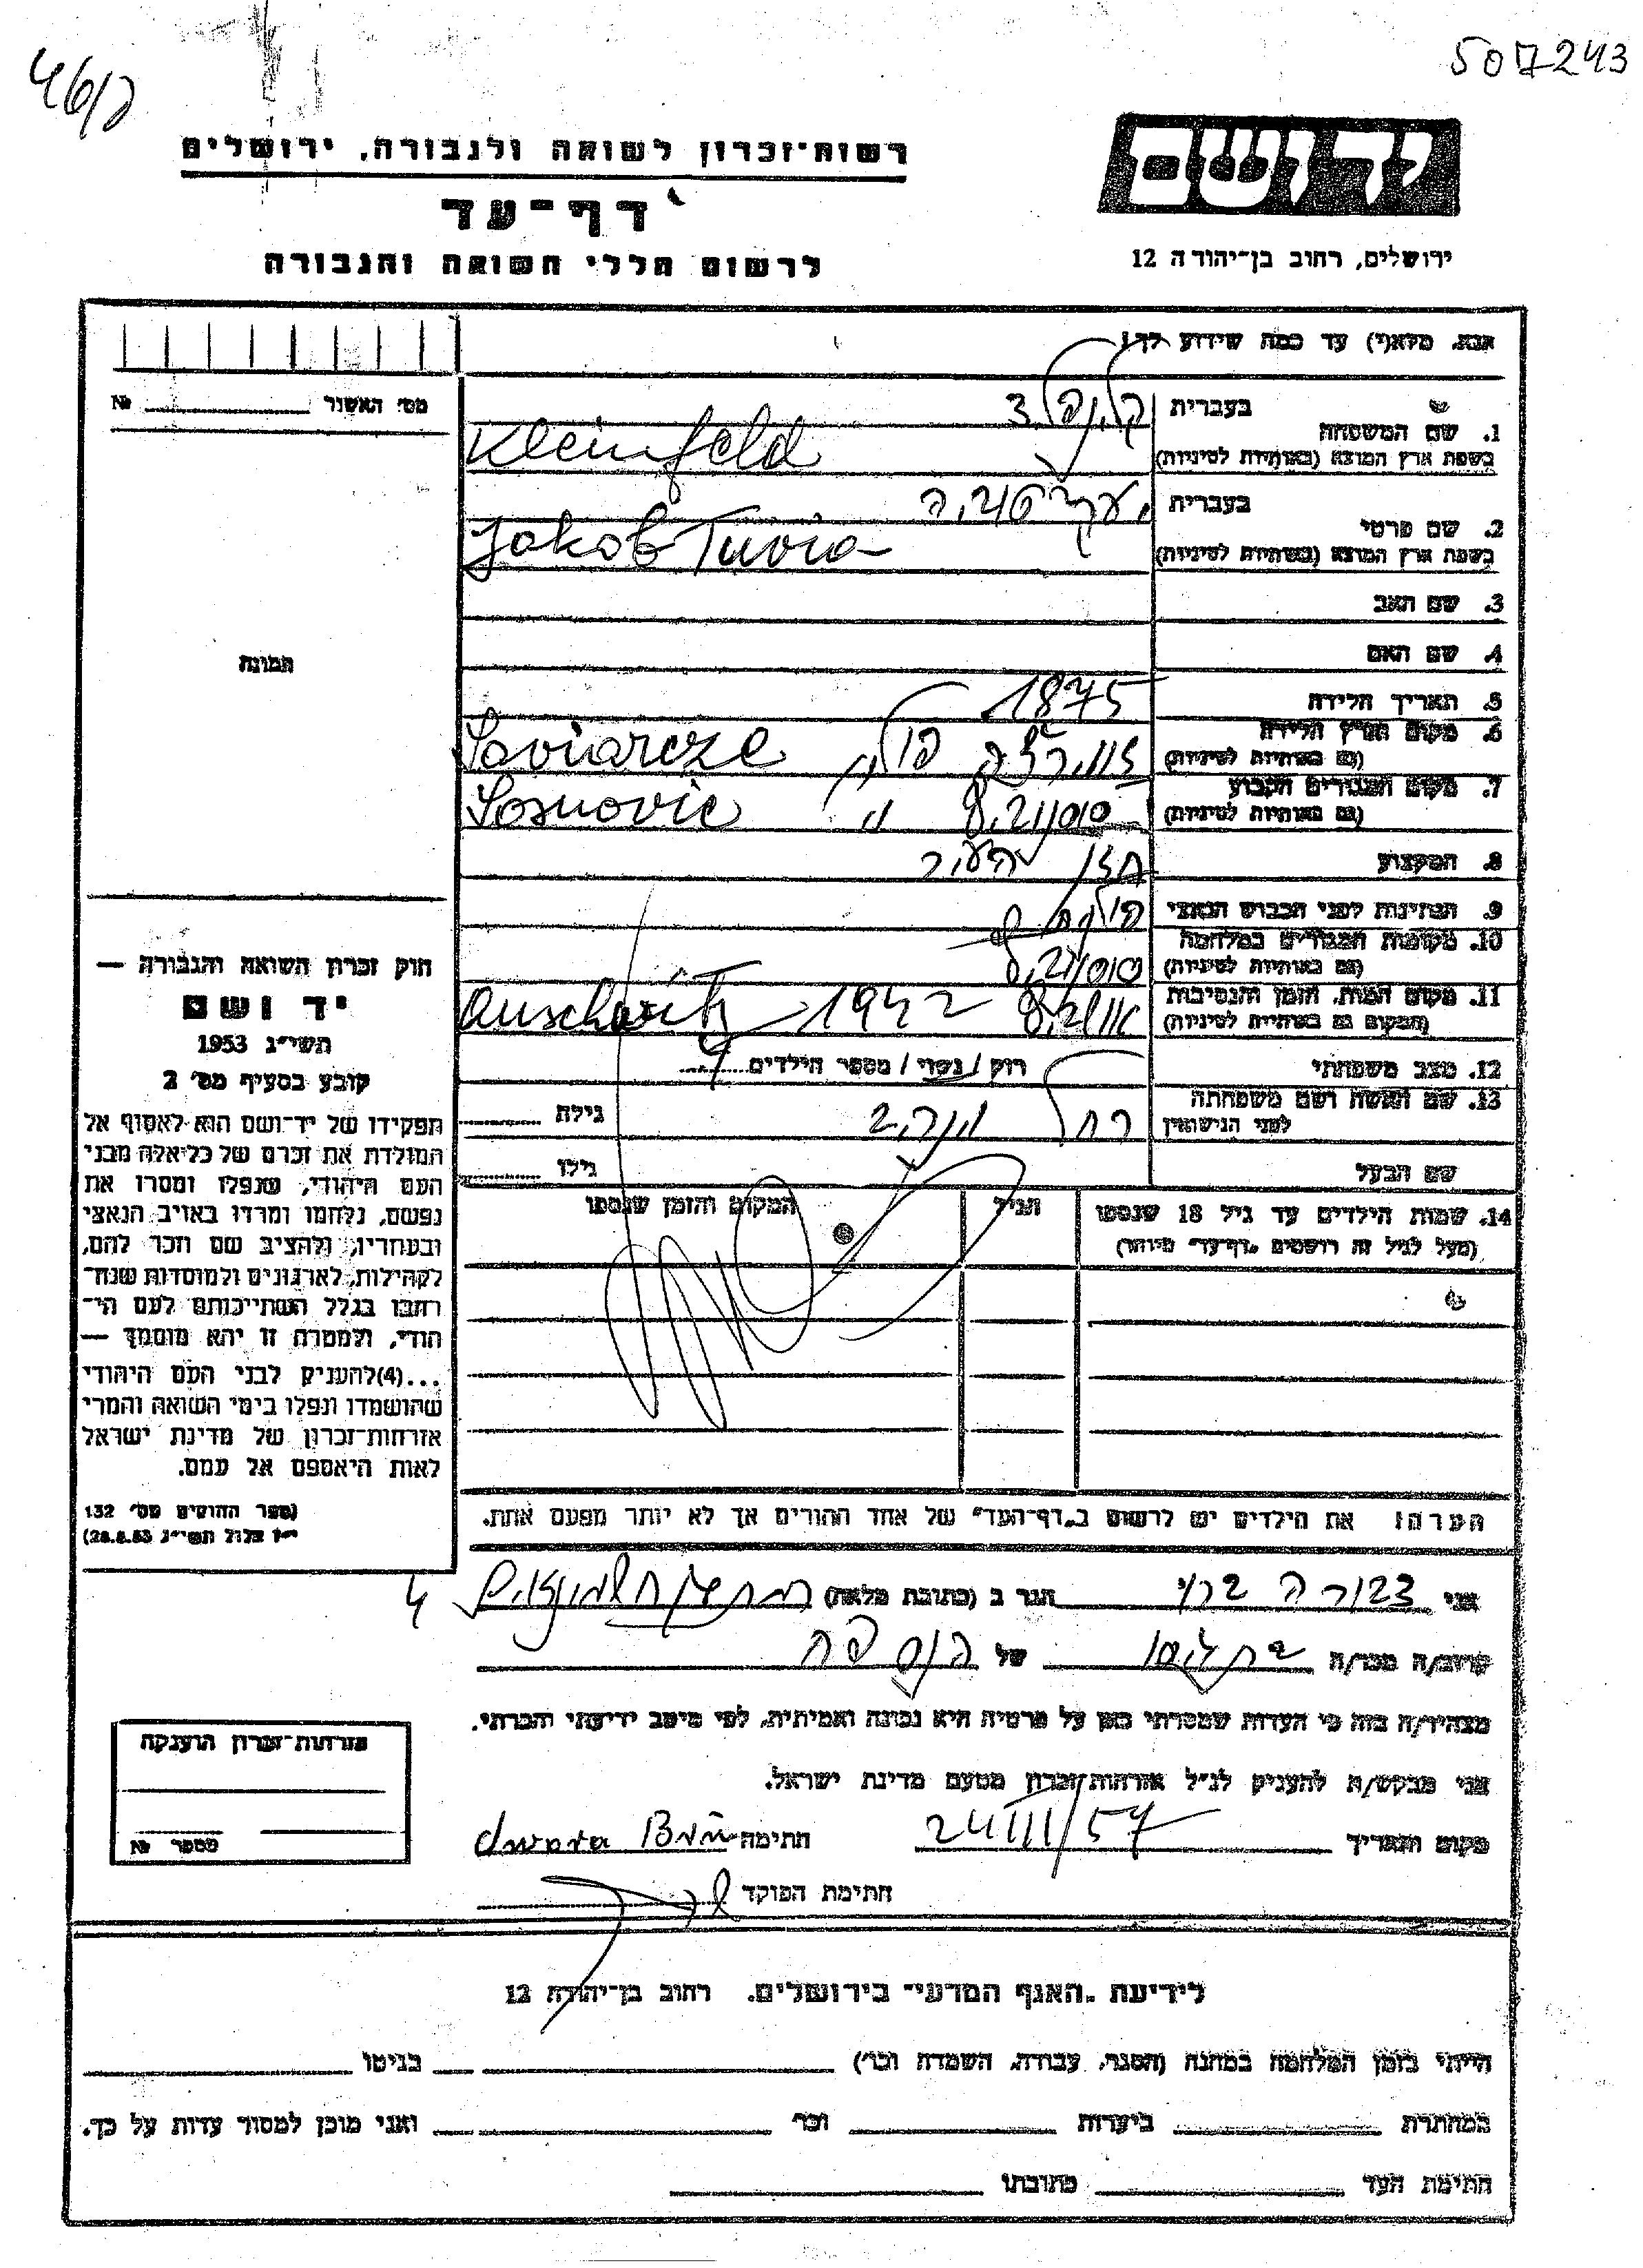 507243
46/ד
יד ושם
רשות־זכרון לשואה ולגבורה, ירושלים
דף־עד
לרשום חללי השואה והגבורה
ירושלים, רחוב בן־יהודה 12
אנא, מלא(י) עד כמה שידוע לך!
מס׳ האשור № 
1. שם המשפחה
בעברית קלינפלד
בשפת ארץ המוצא (באותיות לטיניות) Kleinfeld
2. שם פרטי
בעברית יעקב טוביה
בשפת ארץ המוצא (באותיות לטיניות) Jakob Tuvia
3. שם האב
4. שם האם
5. תאריך הלידה 1875
6. מקום וארץ הלידה
(גם באותיות לטיניות) פולין
7. מקום המגורים הקבוע
(גם באותיות לטיניות) סוסנוביץ " Sosnovic
8. המקצוע חזן העיר
9. הנתינות לפני הכבוש הנאצי פולנית
10. מקומות המגורים במלחמה
(גם באותיות לטיניות) סוסנוביץ
11. מקום המות, הזמן והנסיבות
(המקום גם באותיות לטיניות) אושביץ 1942 Auschwitz
12. מצב משפחתי רווק / נשוי / מספר הילדים 4
13. שם האשה ושם משפחתה
לפני הנישואין רחל גילה
שם הבעל גילו
14. שמות הילדים עד גיל 18 שנספו
(מעל לגיל זה רושמים "דף־עד" מיוחד)
הגיל
המקום והזמן שנספו
תמונה
חוק זכרון השואה והגבורה —
יד ושם
תשי״ג 1953
קובע בסעיף מס׳ 2
תפקידו של יד־ושם הוא לאסוף אל
המולדת את זכרם של כל־אלה מבני
העם היהודי, שנפלו ומסרו את
נפשם, נלחמו ומרדו באויב הנאצי
ובעוזריו, ולהציב שם וזכר להם,
לקהילות, לארגונים ולמוסדות שנח־
רבו בגלל השתייכותם לעם הי־
הודי, ולמטרה זו יהא מוסמך —
...(4)להעניק לבני העם היהודי
שהושמדו ונפלו בימי השואה והמרי
אזרחות־זכרון של מדינת ישראל
לאות היאספם אל עמם.
(ספר החוקים מס׳ 132
י״ז אלול תשי״ג 28.8.53)
הערה: את הילדים יש לרשום ב"דף־העד" של אחד ההורים אך לא יותר מפעם אחת.
אני דבורה ברין הגר ב (כתובת מלאה)
קרוב/ה מכר/ה של הנספה
מצהיר/ה בזה כי העדות שמסרתי כאן על פרטיה היא נכונה ואמיתית, לפי מיטב ידיעתי והכרתי.
אני מבקש/ת להעניק לנ״ל אזרחות־זכרון מטעם מדינת ישראל.
מקום ותאריך 24/III/57 חתימה dwora Brün
חתימת הפוקד
אזרחות־זכרון הוענקה
מספר №
לידיעת "האגף המדעי" בירושלים. רחוב בן־יהודה 12
הייתי בזמן המלחמה במחנה (הסגר, עבודה, השמדה וכו׳) בגיטו
במחתרת ביערות וכו׳ ואני מוכן למסור עדות על כך.
חתימת העד כתובתו